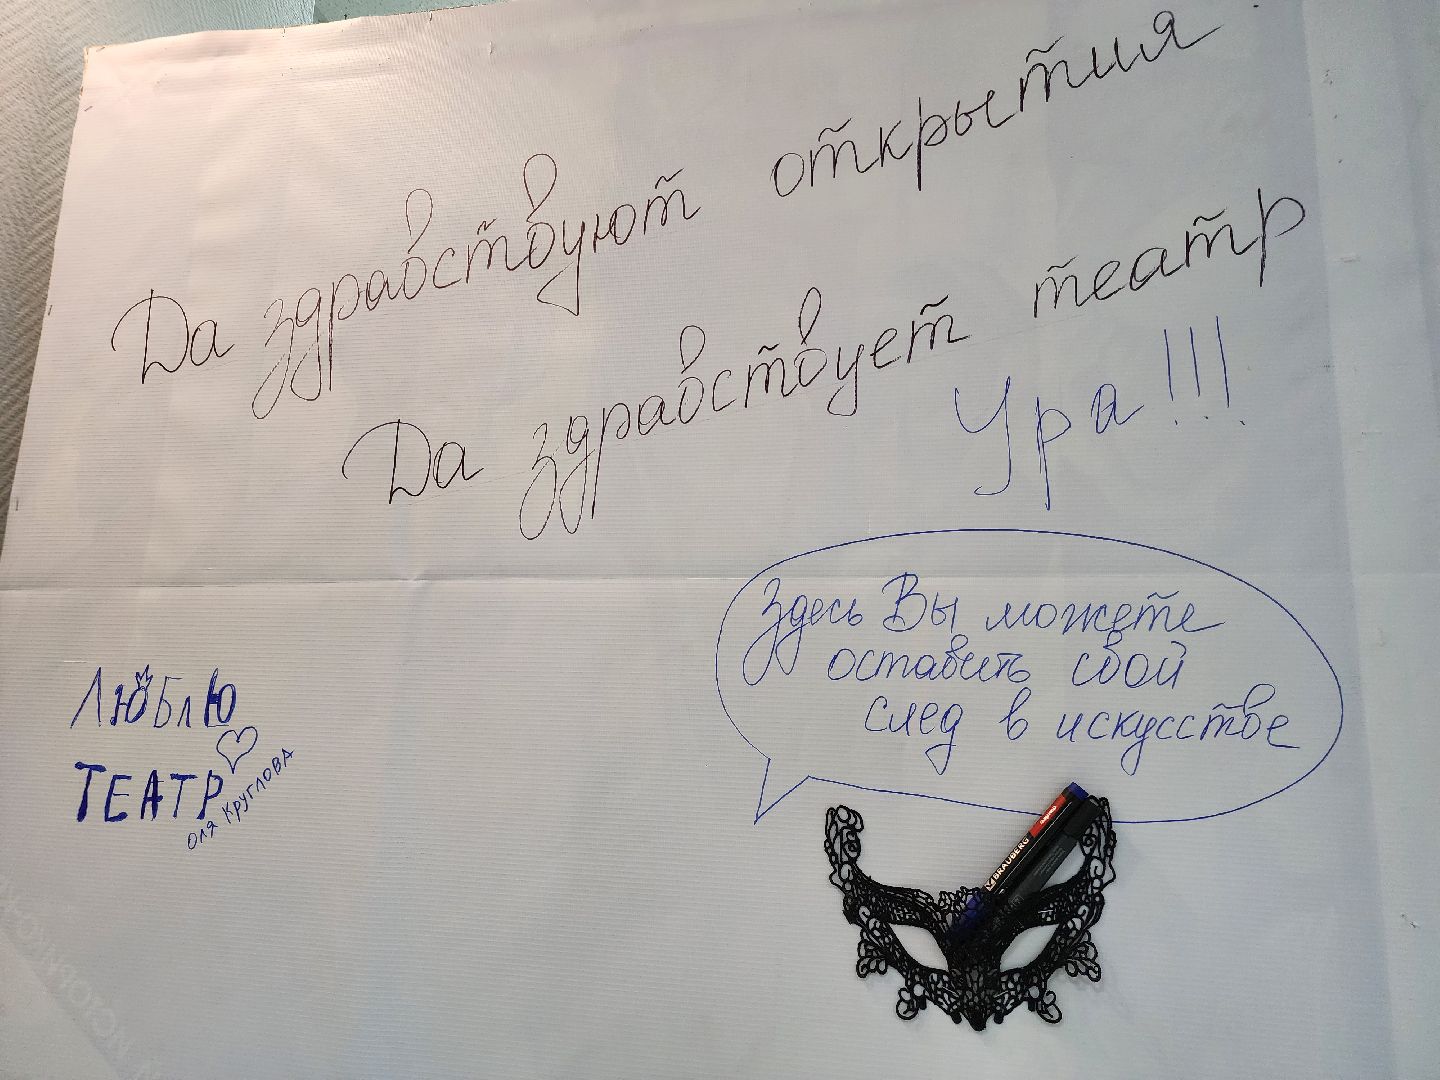 Да здравствуют открытия
Да здравствует театр
Ура!!!
Здесь Вы можете
оставить свой
след в искусстве
ЛЮБЛЮ
ТЕАТР
ОЛЯ КРУГЛОВА
BRAUBERG